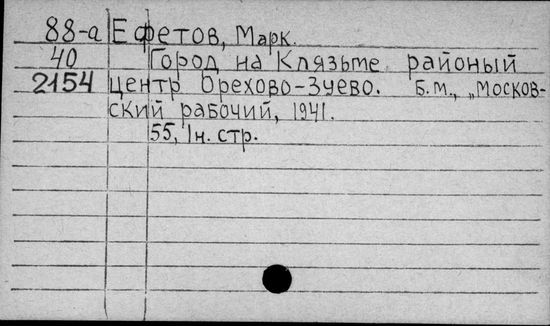 88-а Ефетов, Марк.
40 Город на Клязьме районый
2154 центр Орехово-Зуево. Б.м., „Москов-
ский рабочий, 1941.
55, 1н. стр.